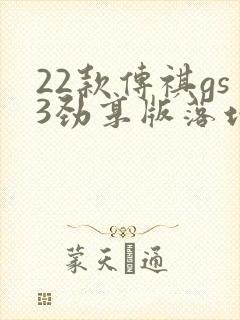 22款传祺gs
3劲享版落地
蒙天通